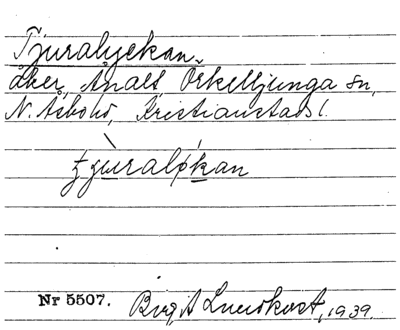 Tjuralyckan.
åker, Ånalt, Örkelljunga sn,
N. Åsbo hd, Kristianstads l.
tjùraløkan
Nr 5507. Birgit Lundkvist, 1939.